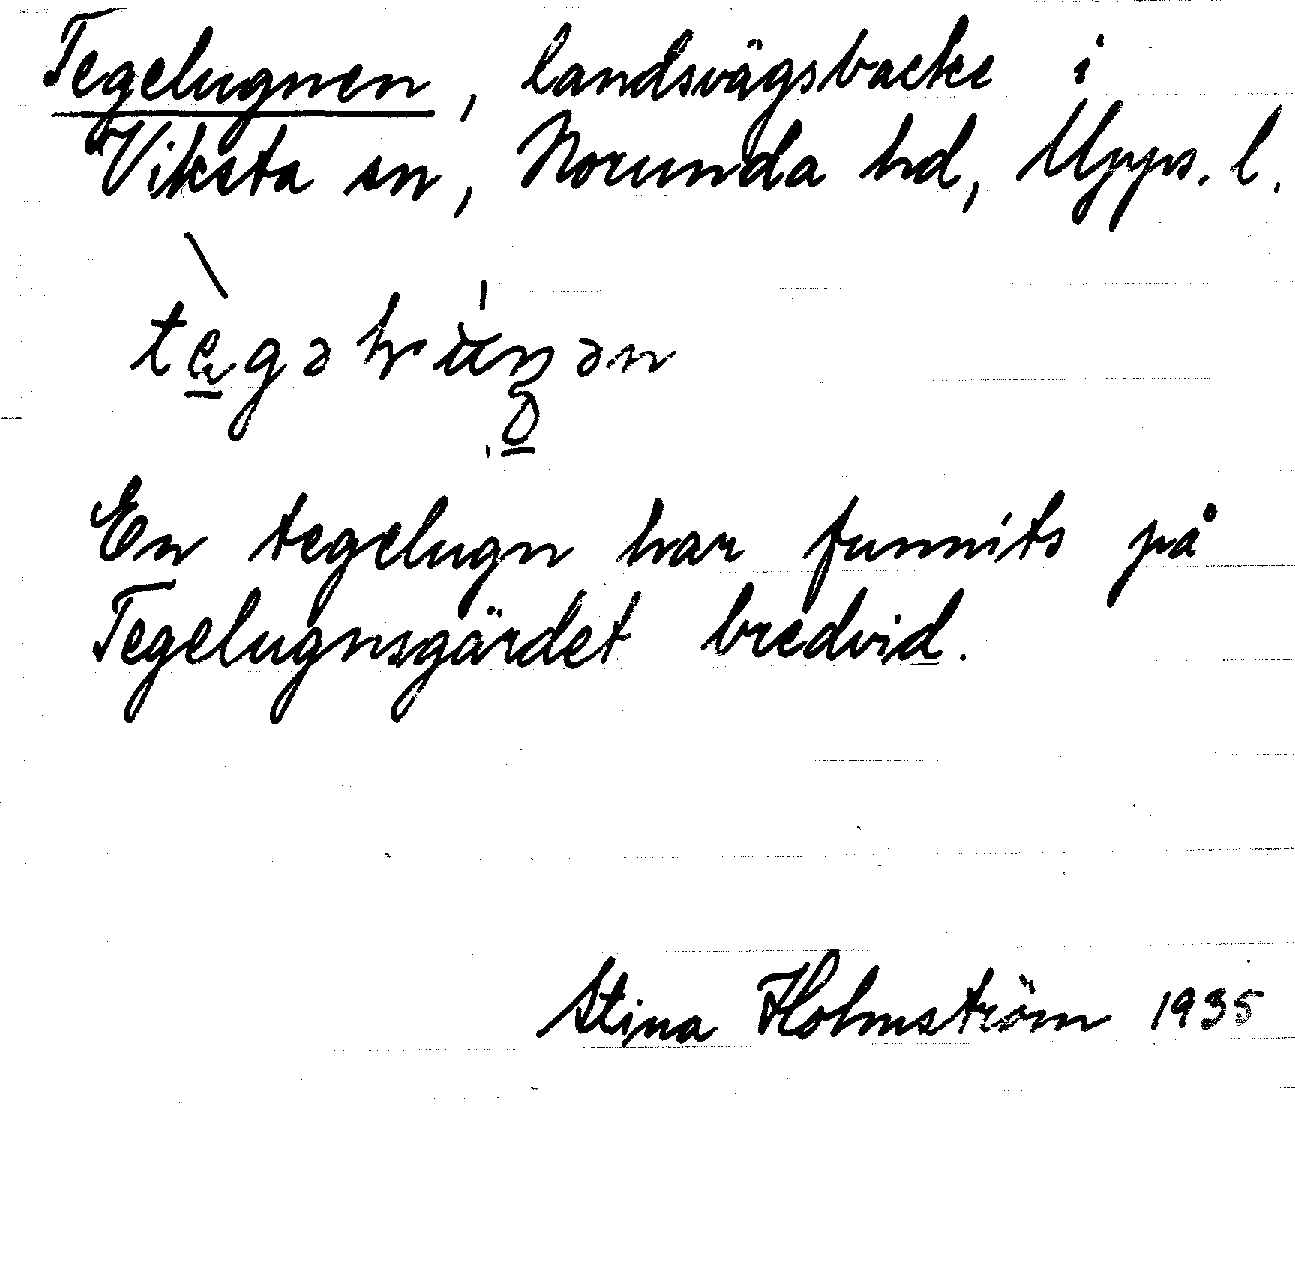 Tegelugnen, landsvägsbacke i
Viksta sn, Norunda hd, Upps. l.
En tegelugn har funnits på
Tegelugnsgärdet bredvid.
Stina Holmström 1935